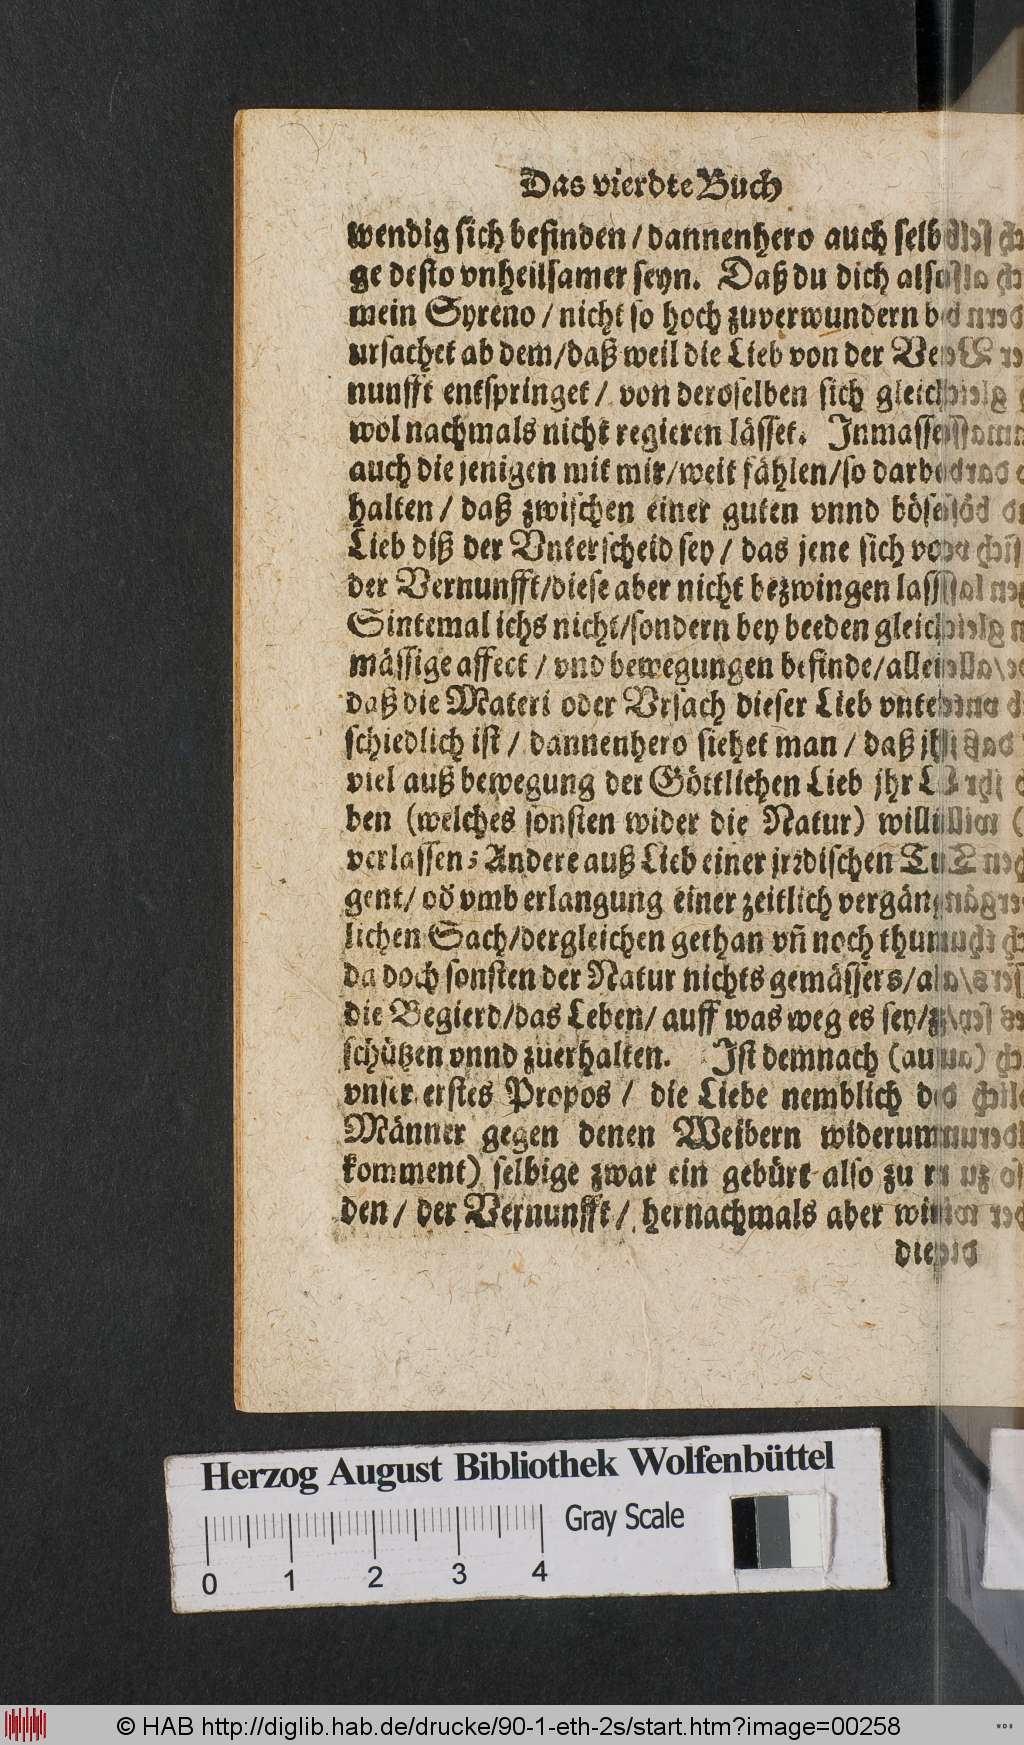 Das vierdte Buch
wendig sich befinden / dannenhero auch selb
ge desto vnheilsamer seyn. Daß du dich also
mein Syreno / nicht so hoch zuverwundern
ursachet ab dem/daß weil die Lieb von der Ver
nunfft entspringet / von deroselben sich gleich
wol nachmals nicht regieren lässet. Inmassen
auch die jenigen mit mir/weit fählen/so darb
halten / daß zwischen einer guten vnnd bösen
Lieb diß der Vnterscheid sey / das jene sich von
der Vernunfft/diese aber nicht bezwingen lass
Sintemal ichs nicht/sondern bey beeden gleich
mässige affect / vnd bewegungen befinde/allein
daß die Materi oder Vrsach dieser Lieb vnter
schiedlich ist / dannenhero siehet man / daß jh
viel auß bewegung der Göttlichen Lieb jhr Le
ben (welches sonsten wider die Natur) willi
verlassen; Andere auß Lieb einer jrrdischen Tu
gent/ od̄ vmb erlangung einer zeitlich vergäng
lichen Sach/dergleichen gethan vn̄ noch thun
da doch sonsten der Natur nichts gemässers/als
die Begierd/das Leben/ auff was weg es sey/z
schützen vnnd zuerhalten. Ist demnach (au
vnser erstes Propos / die Liebe nemblich der
Männer gegen denen Weibern widerumm
komment) selbige zwar ein gebürt also zu re
den / der Vernunfft / hernachmals aber wi
die
Herzog August Bibliothek Wolfenbüttel
Gray Scale
0 1 2 3 4
© HAB http://diglib.hab.de/drucke/90-1-eth-2s/start.htm?image=00258